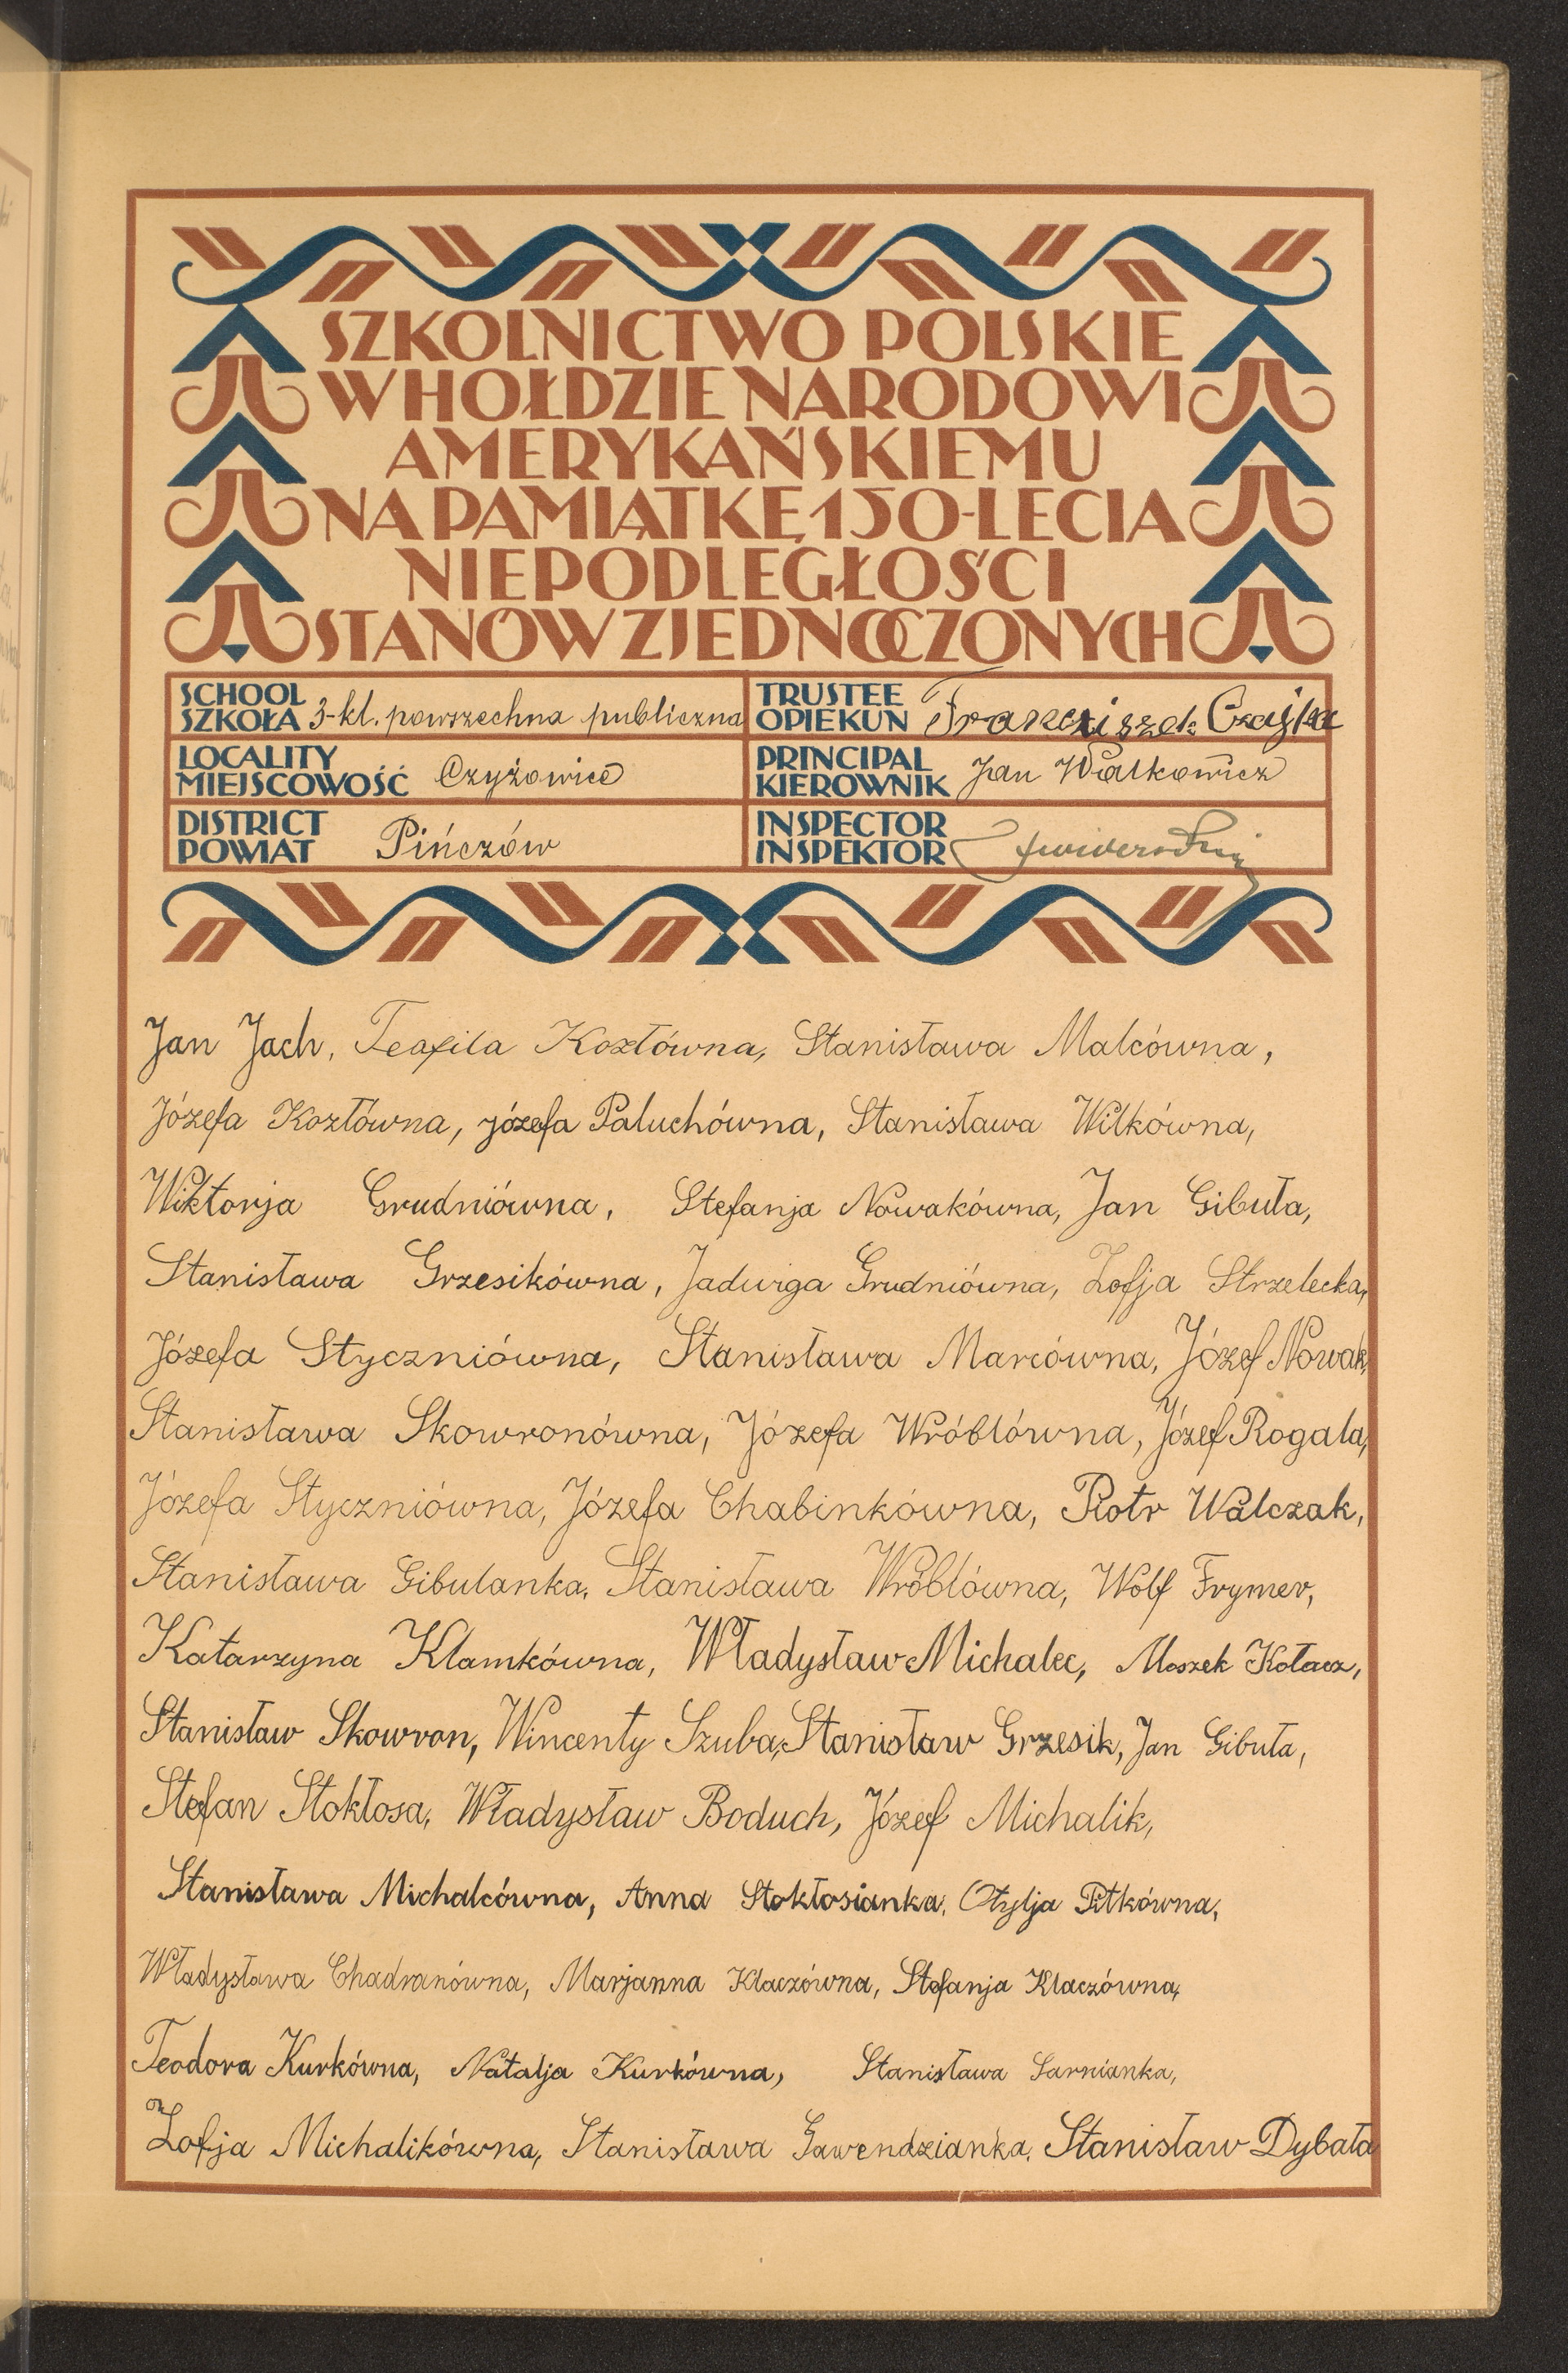 SZKOLNICTWO POLSKIE
W HOŁDZIE NARODOWI
AMERYKAŃSKIEMU
NA PAMIĄTKĘ 150-LECIA
NIEPODLEGŁOŚCI
STANÓW ZJEDNOCZONYCH
SCHOOL
SZKOŁA 3-kl. powszechna publiczna
TRUSTEE
OPIEKUN Franciszek Czajka
LOCALITY
MIEJSCOWOŚĆ Czyżowice
PRINCIPAL
KIEROWNIK Jan Walkowicz
DISTRICT
POWIAT Pińczów
INSPECTOR
INSPEKTOR
Jan Jach, Teofila Kozłówna, Stanisława Malcówna,
Józefa Kozłówna, józefa Paluchówna, Stanisława Wilkówna,
Wiktorja Grudniówna, Stefanja Nowakówna, Jan Gibuła,
Stanisława Grzesikówna, Jadwiga Grudniówna, Zofja Strzelecka,
Józefa Styczniówna, Stanisława Marcówna, Józef Nowak,
Stanisława Skowronówna, Józefa Wróblówna, Józef Rogala,
Józefa Styczniówna, Józefa Chabinkówna, Piotr Walczak,
Stanisława Gibulanka, Stanisława Wróblówna, Wolf Frymer,
Katarzyna Klamkówna, Władysław Michalec, Moszek Kołacz,
Stanisław Skowron, Wincenty Szuba, Stanisław Grzesik, Jan Gibuła,
Stefan Stokłosa, Władysław Boduch, Józef Michalik,
Stanisława Michalcówna, Anna Stokłosianka, Otylja Pitkówna,
Władysława Chadranówna, Marjanna Klaczówna, Stefanja Klaczówna,
Teodora Kurkówna, Natalja Kurkówna, Stanisława Sarnianka,
Zofja Michalikówna, Stanisława Gawendzianka, Stanisław Dybała